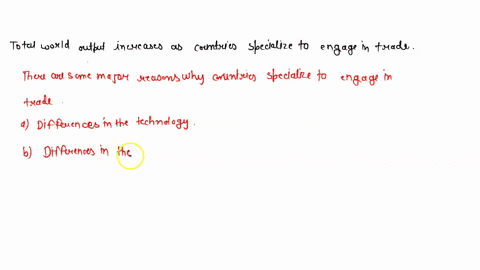 Total world output increases as countries specialize to engage in trade.
There are some major reasons why countries specialize to engage in
trade.
a) Differences in the technology.
b) Differences in the